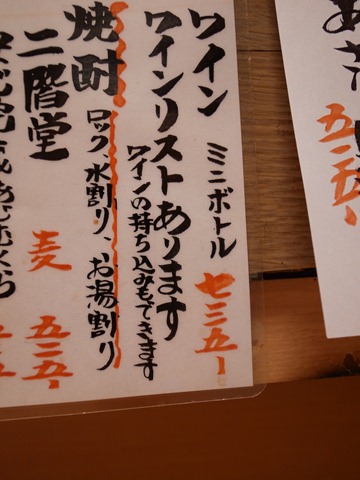 ワイン ミニボトル 七三五ー
ワインリストあります
ワインの持ち込みもできます
焼酎 ロック、水割り、お湯割り
二階堂 麦 五二五ー